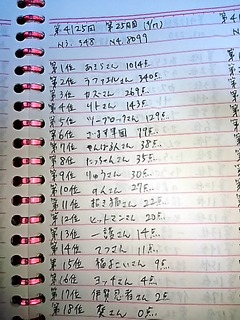 第4125回 第25回目 (9/17)
N3.548 N4.8099
第1位 あきらさん 1014点
第2位 ラファエルさん 340点
第3位 カズさん 269点
第4位 リトさん 143点
第5位 さん 129点
第6位 さん 79点
第7位 さん 38点
第8位 にっちんさん 35点
第9位 りゅうさん 30点
第10位 さん 27点
第11位 招き猫さん 22点
第12位 ヒットマンさん 20点
第13位 一護さん 14点
第14位 てつさん 11点
第15位 さん 9点
第16位 ヨッチさん 4点
第17位 伊賀忍者さん 2点
第18位 葵さん 0点